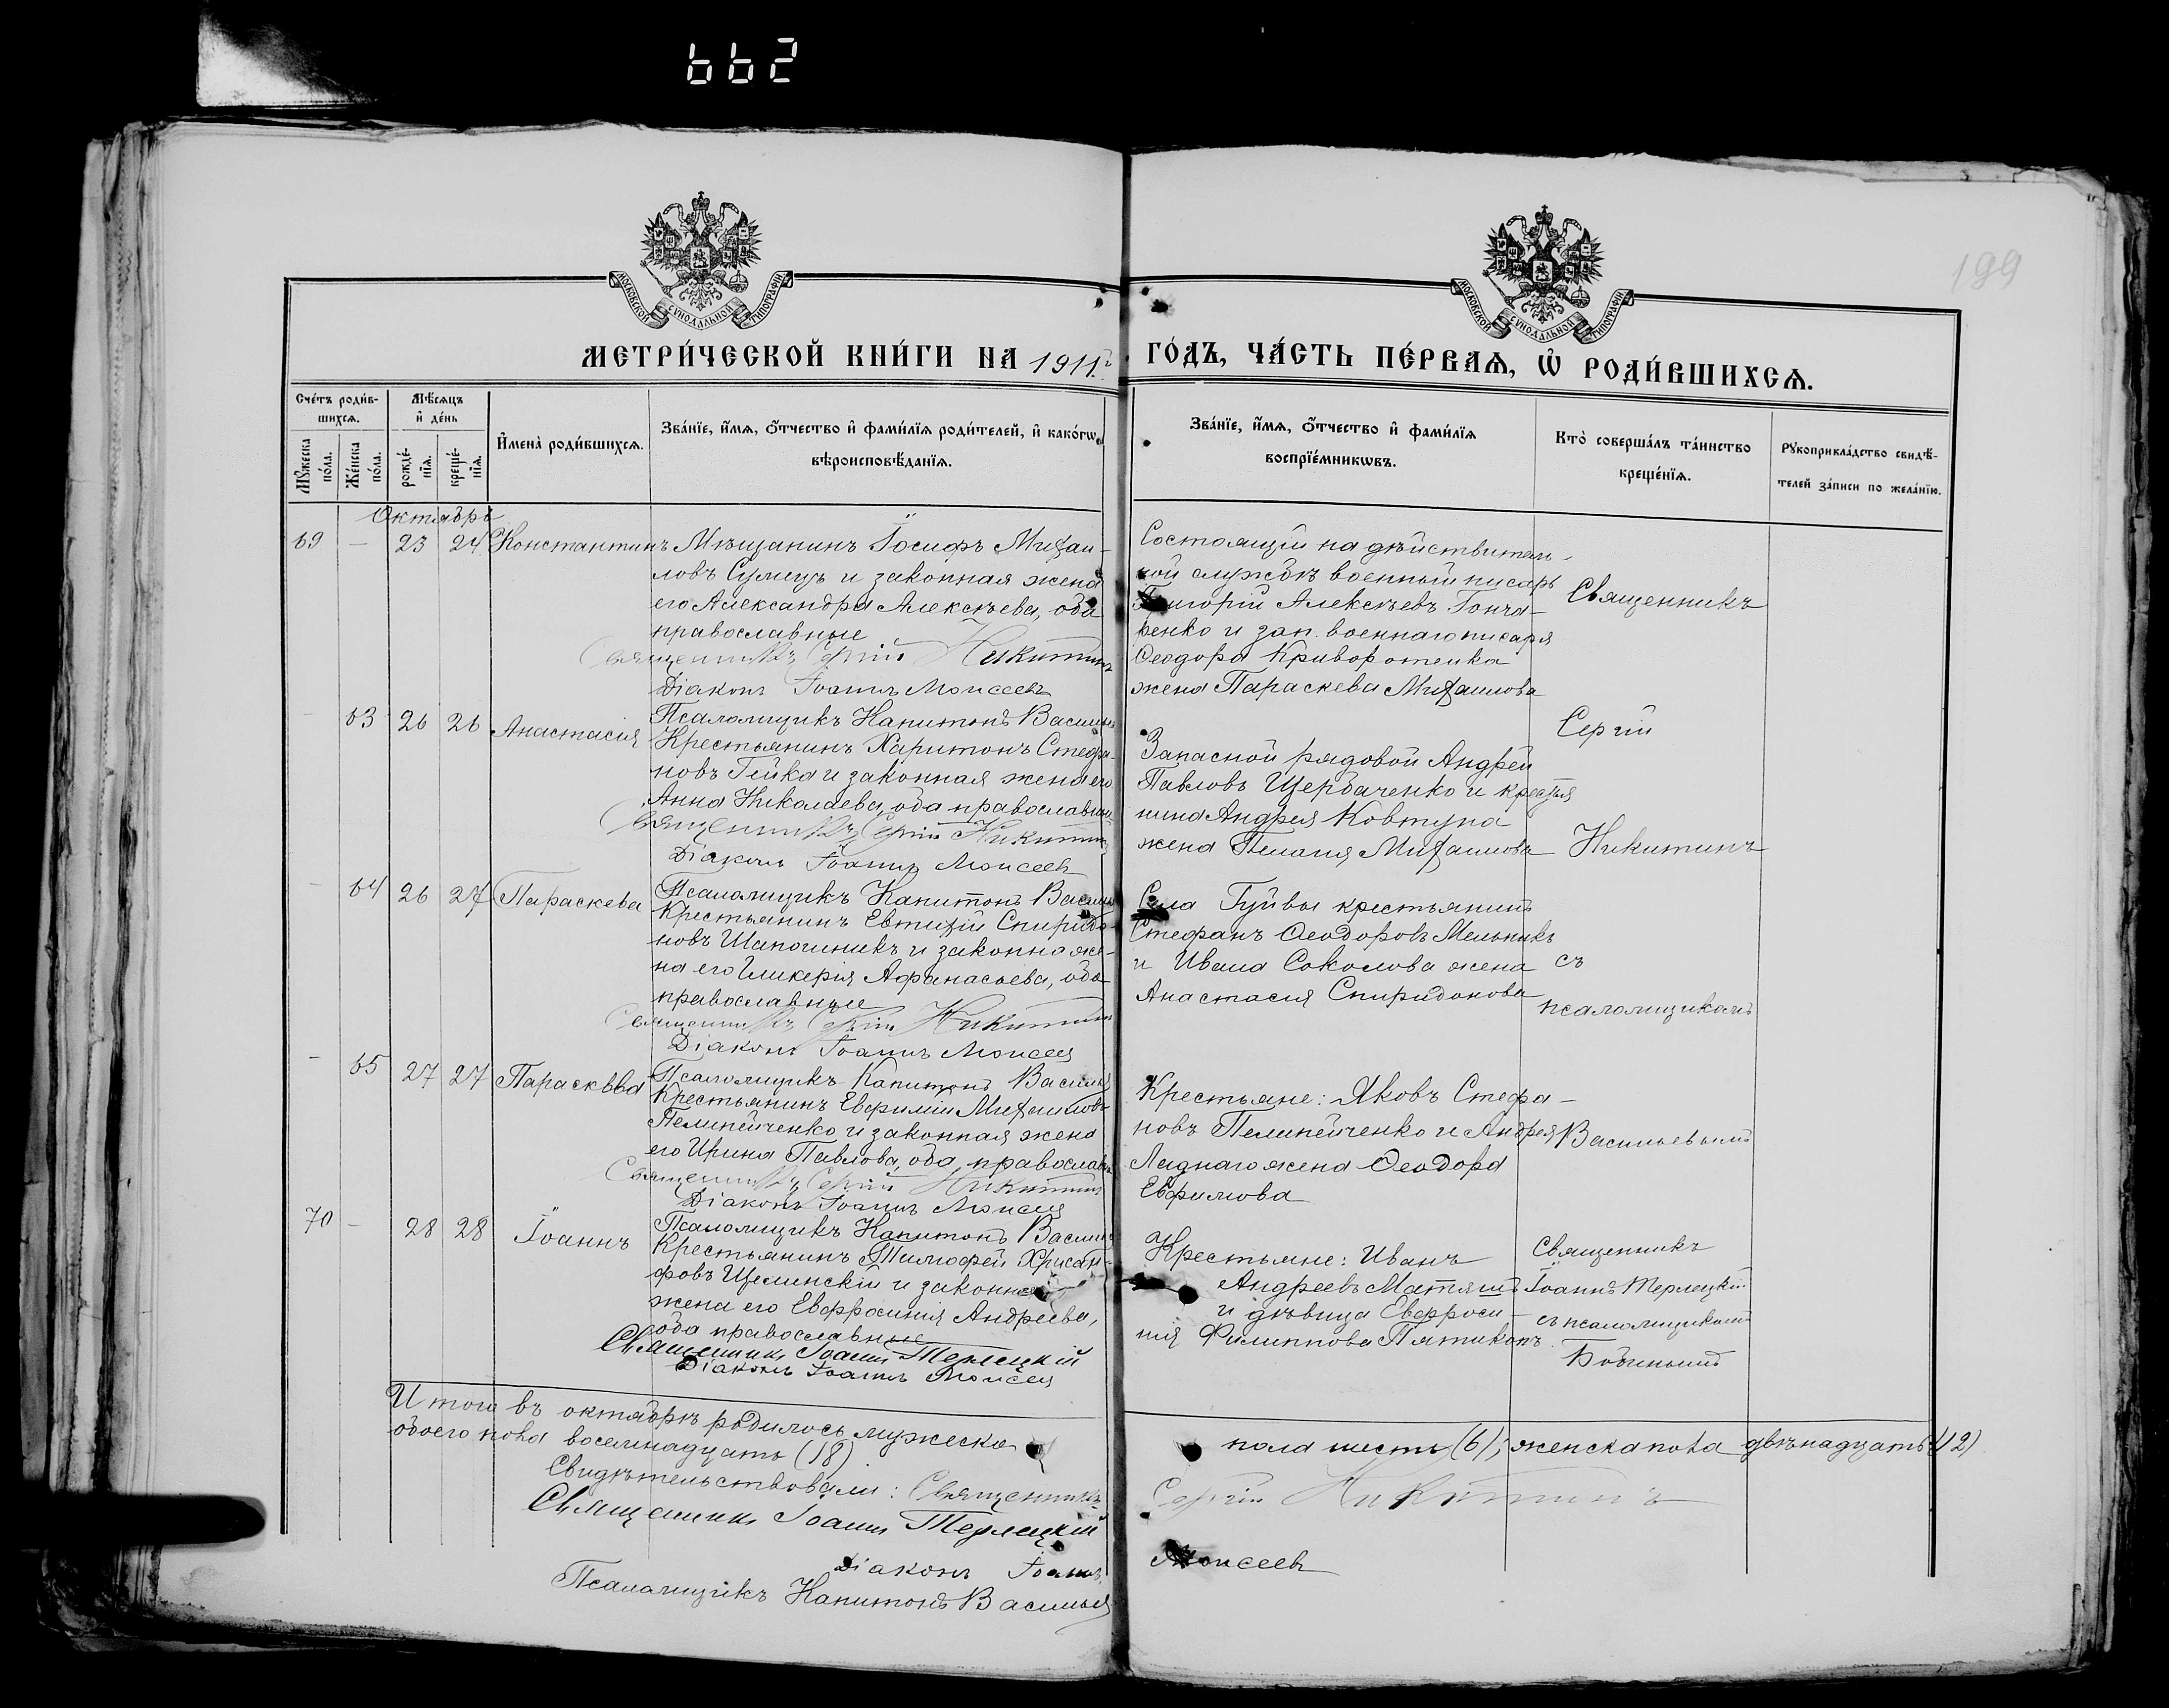 662
199
МОСКОВСКОЙ СѴНОДАЛЬНОЙ ТИПОГРАФІИ
МОСКОВСКОЙ СѴНОДАЛЬНОЙ ТИПОГРАФІИ
МЕТРИ́ЧЕСКОЙ КНИ́ГИ НА 1911 й ГО́ДЪ, ЧА́СТЬ ПЕ́РВАЯ, Ѿ РОДИ́ВШИХСѦ.
Сче́тъ роди́в-
шихсѧ.
Мѣ́сѧцъ
и҆ де́нь
Мꙋ́жеска
по́ла.
Же́нска
по́ла.
рожде́-
нїѧ.
креще́-
нїѧ.
И҆мена̀ роди́вшихсѧ.
Зва́нїе, и҆́мѧ, ѻ҆́тчество и҆ фами́лїѧ роди́телей, и҆ како́гѡ
вѣроисповѣ́данїѧ.
Зва́нїе, и҆́мѧ, ѻ҆́тчество и҆ фами́лїѧ
воспрїе́мникѡвъ.
Кто̀ соверша́лъ та́инство
креще́нїѧ.
Рꙋкоприкла́дство свидѣ́-
телей за́писи по жела́нїю.
Октябрь
69 — 23 24 Константинъ
Мѣщанинъ Іосифъ Михаи-
ловъ Сумецъ и законная жена
его Александра Алексѣева, оба
православные
Священникъ Сергій Никитинъ
Діаконъ Іоаннъ Моисеевъ
Псаломщикъ Капитонъ Василь
Состоящій на дѣйствитель-
ной службѣ военный писарь
Григорій Алексѣевъ Гонча-
ренко и зап. военнаго писаря
Ѳеодора Криворотенка
жена Параскева Михаилова
Священникъ
Сергій
Никитинъ
съ
псаломщикомъ
Васильевымъ
— 63 26 26 Анастасія
Крестьянинъ Харитонъ Стефа-
новъ Гейка и законная жена его
Анна Николаева, оба православн
Священникъ Сергій Никитинъ
Діаконъ Іоаннъ Моисеевъ
Псаломщикъ Капитонъ Василь
Запасной рядовой Андрей
Павловъ Щербаченко и крестья
нина Андрея Ковтуна
жена Пелагія Михаилова
— 64 26 27 Параскева
Крестьянинъ Евтихій Спиридо-
новъ Шапочникъ и законна же-
на его Гликерія Афанасьева, оба
православные
Священникъ Сергій Никитинъ
Діаконъ Іоаннъ Моисеев
Псаломщикъ Капитонъ Василь
Села Гуйвы крестьянинъ
Стефанъ Ѳеодоровъ Мельникъ
и Ивана Соколова жена
Анастасія Спиридонова
— 65 27 27 Параскева
Крестьянинъ Евфимій Михаиловъ
Пелипейченко и законная жена
его Ирина Павлова, оба православн
Священникъ Сергій Никитинъ
Діаконъ Іоаннъ Моисеев
Псаломщикъ Капитонъ Василь
Крестьяне: Яковъ Стефа-
новъ Пелипейченко и Андрея
Ладнаго жена Ѳеодора
Евфимова
70 — 28 28 Іоаннъ
Крестьянинъ Тимофей Хрисан-
фовъ Щелинскій и законная
жена его Евфросинія Андреева,
оба православные
Священникъ Іоаннъ Терлецкій
Діаконъ Іоаннъ Моисеев
Крестьяне: Иванъ
Андреевъ Матяшъ
и дѣвица Евфроси-
нія Филиппова Пятикопъ
Священникъ
Іоаннъ Терлецкій
съ псаломщикомъ
Итого въ октябрѣ родилось мужеска пола шесть (6), женска пола двѣнадцать (12)
обоего пола восемнадцать (18)
Свидѣтельствовали: Священникъ Сергій Никитинъ
Священникъ Іоаннъ Терлецкій
Діаконъ Іоаннъ Моисеевъ
Псаломщикъ Капитонъ Васильев